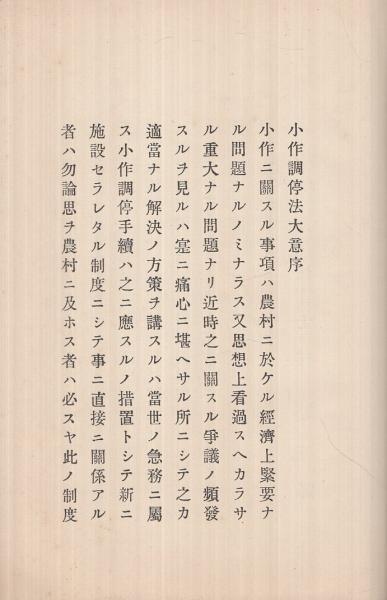 小作調停法大意序
小作ニ關スル事項ハ農村ニ於ケル經濟上緊要ナ
ル問題ナルノミナラス又思想上看過スヘカラサ
ル重大ナル問題ナリ近時之ニ關スル爭議ノ頻發
スルヲ見ルハ寔ニ痛心ニ堪ヘサル所ニシテ之カ
適當ナル解決ノ方策ヲ講スルハ當世ノ急務ニ屬
ス小作調停手續ハ之ニ應スルノ措置トシテ新ニ
施設セラレタル制度ニシテ事ニ直接ニ關係アル
者ハ勿論思ヲ農村ニ及ホス者ハ必スヤ此ノ制度